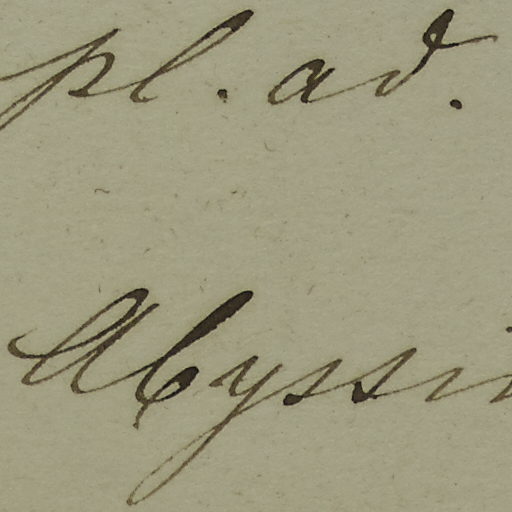 pl. ad.
Abyssi